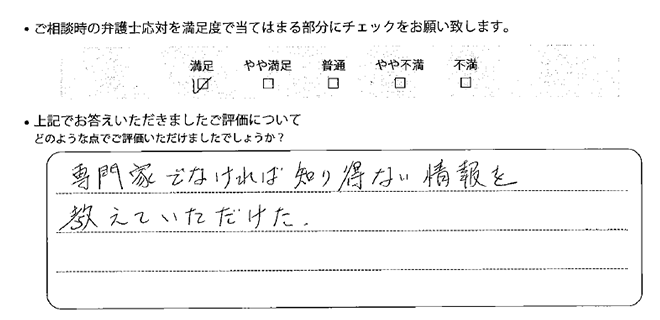 ・ご相談時の弁護士応対を満足度で当てはまる部分にチェックをお願い致します。
満足 やや満足 普通 やや不満 不満
☑ □ □ □ □
・上記でお答えいただきましたご評価について
どのような点でご評価いただけましたでしょうか？
専門家でなければ知り得ない情報を
教えていただけた.